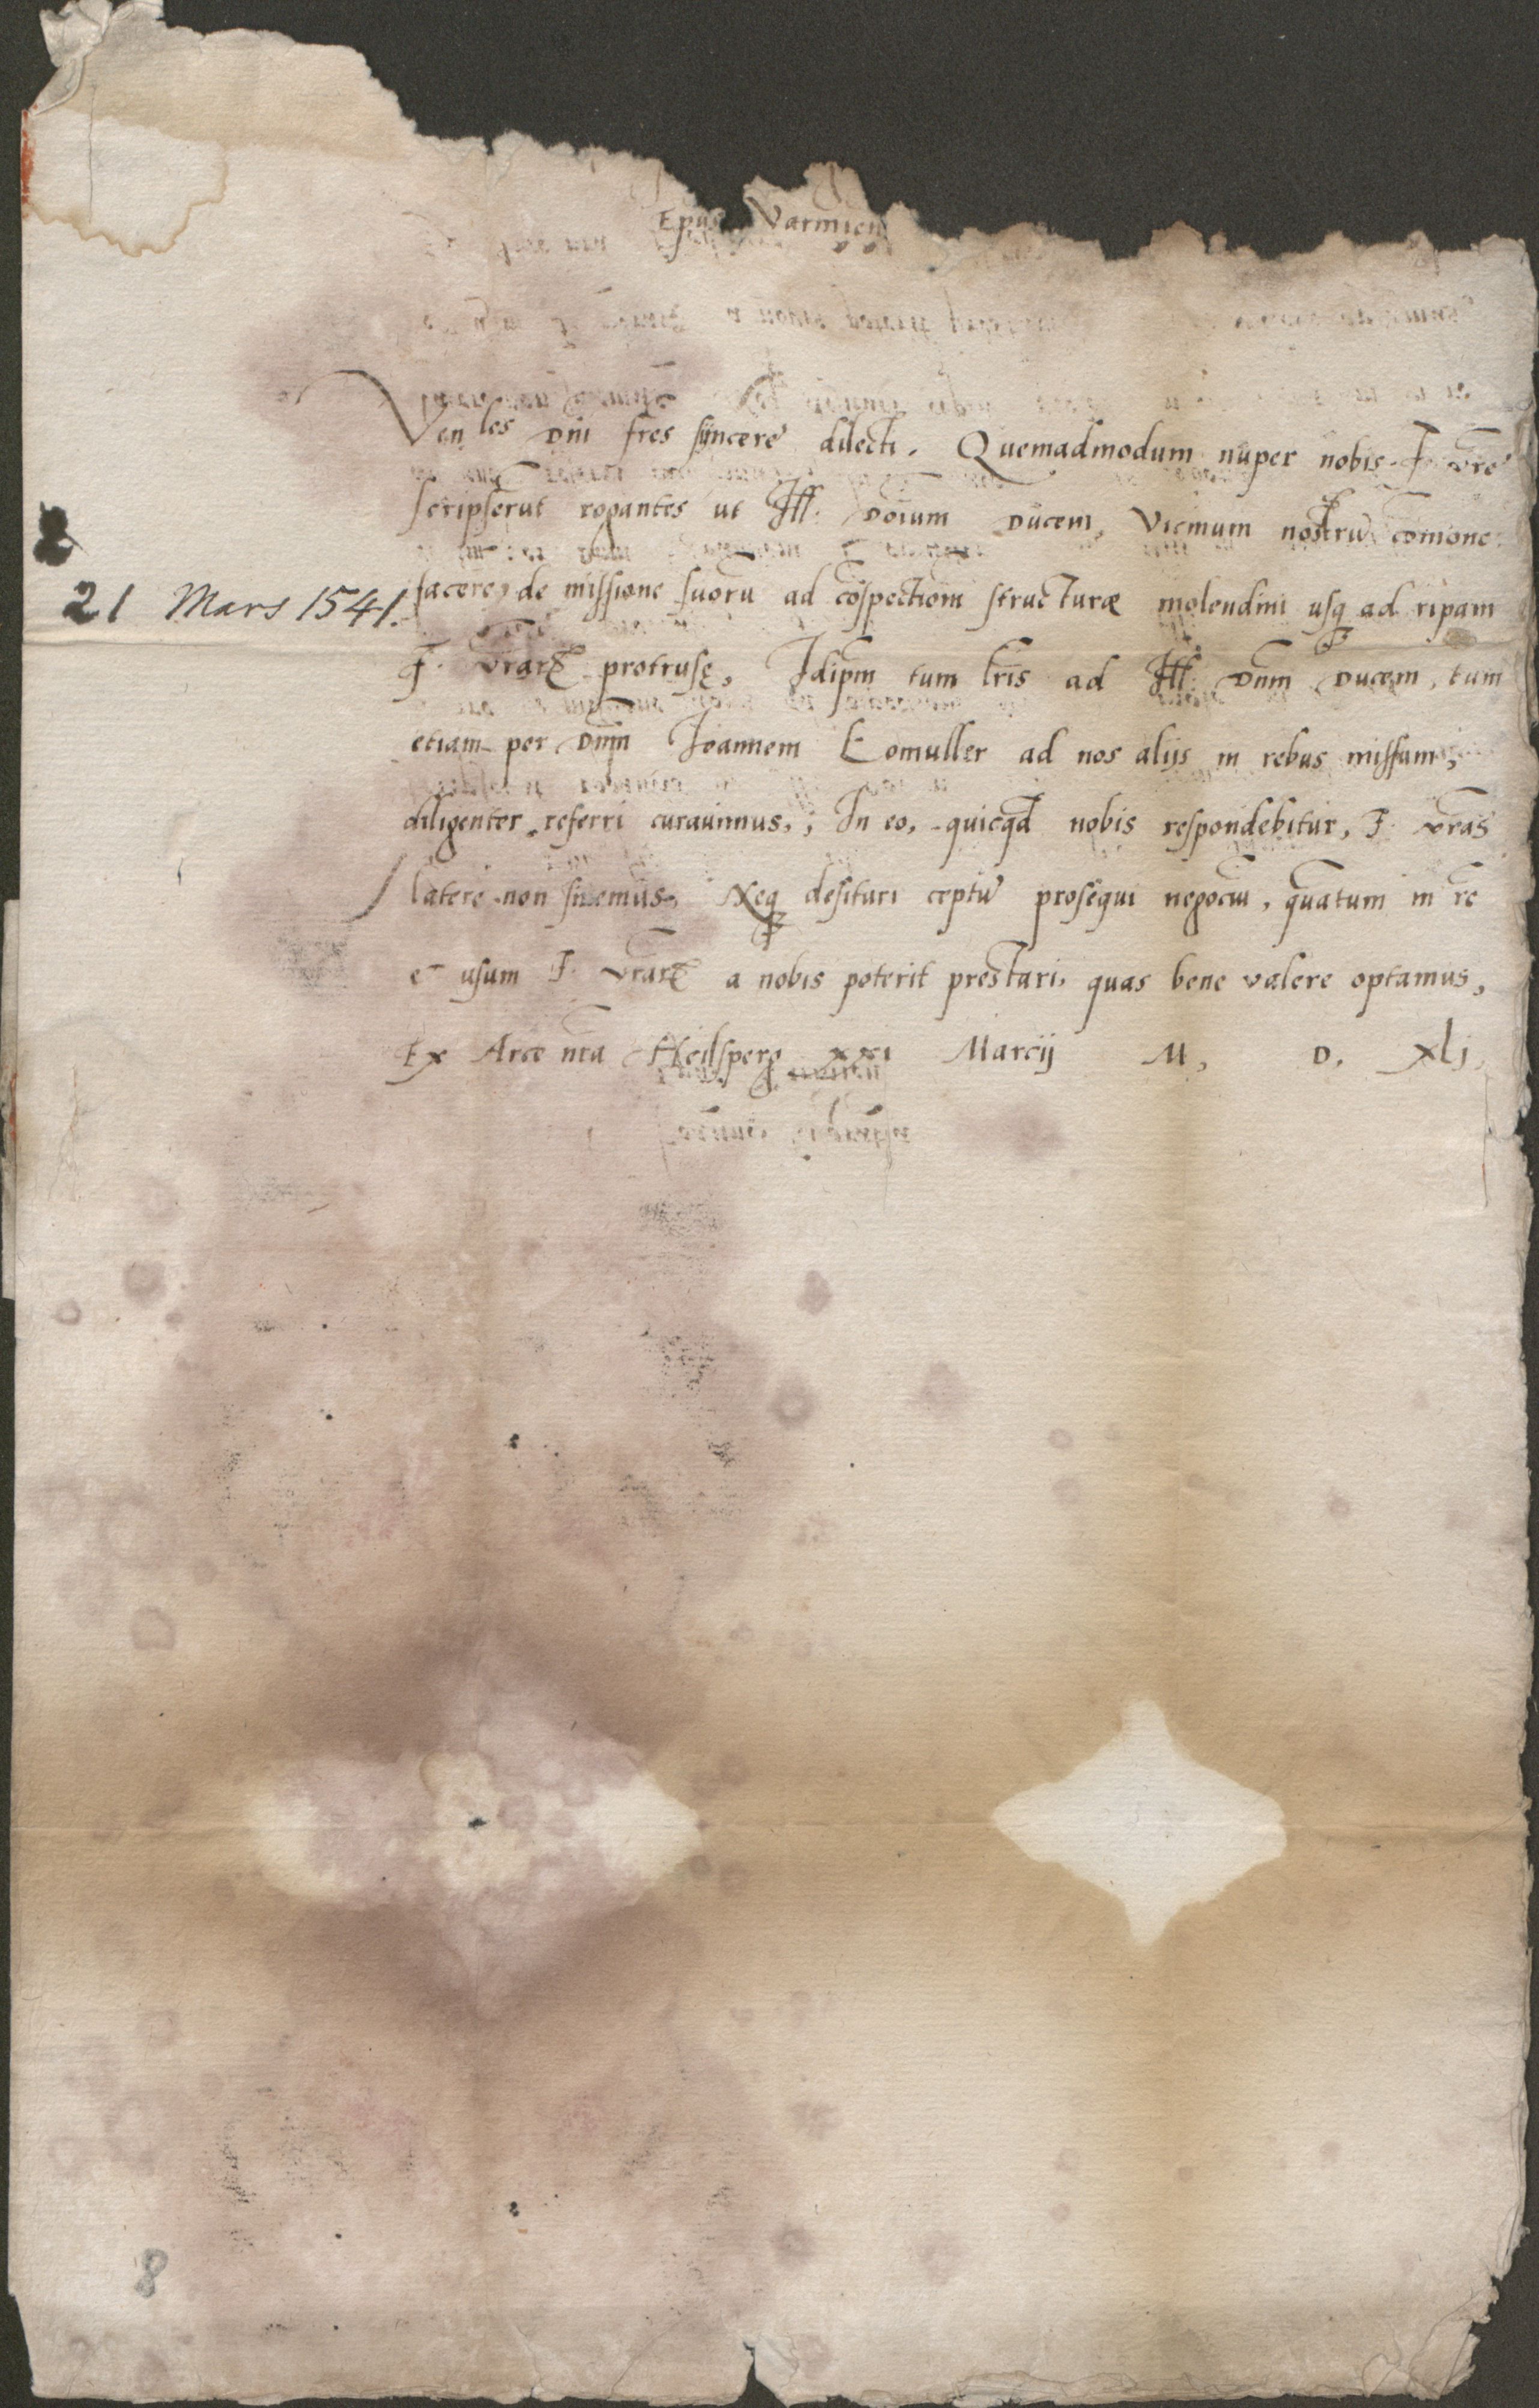 Epus Varmien
Venles Dni fres syncere dilecti. Quemadmodum nuper nobis F vre
scripserut rogantes ut Ill: Doium Ducem, Vicinum nostru comone
facere, de missione suoru ad cospectiom structuræ molendini usq ad ripam
8
21 Mars 1541.
F. vrarę protrusę, Idipm tum lris ad Ill. Dnm Ducem, tum
etiam per Dnm Ioannem ad nos alijs in rebus missum,
diligenter referri curavimus, In eo, quicqd nobis respondebitur, F. vras
latere non sinemus, Neq desituri ceptu prosequi negociu, quatum in re
e usum F. vrarę a nobis poterit prestari, quas bene valere optamus,
Ex Arce nra Heilsperg xxi Marcij M, D. xlj.
8